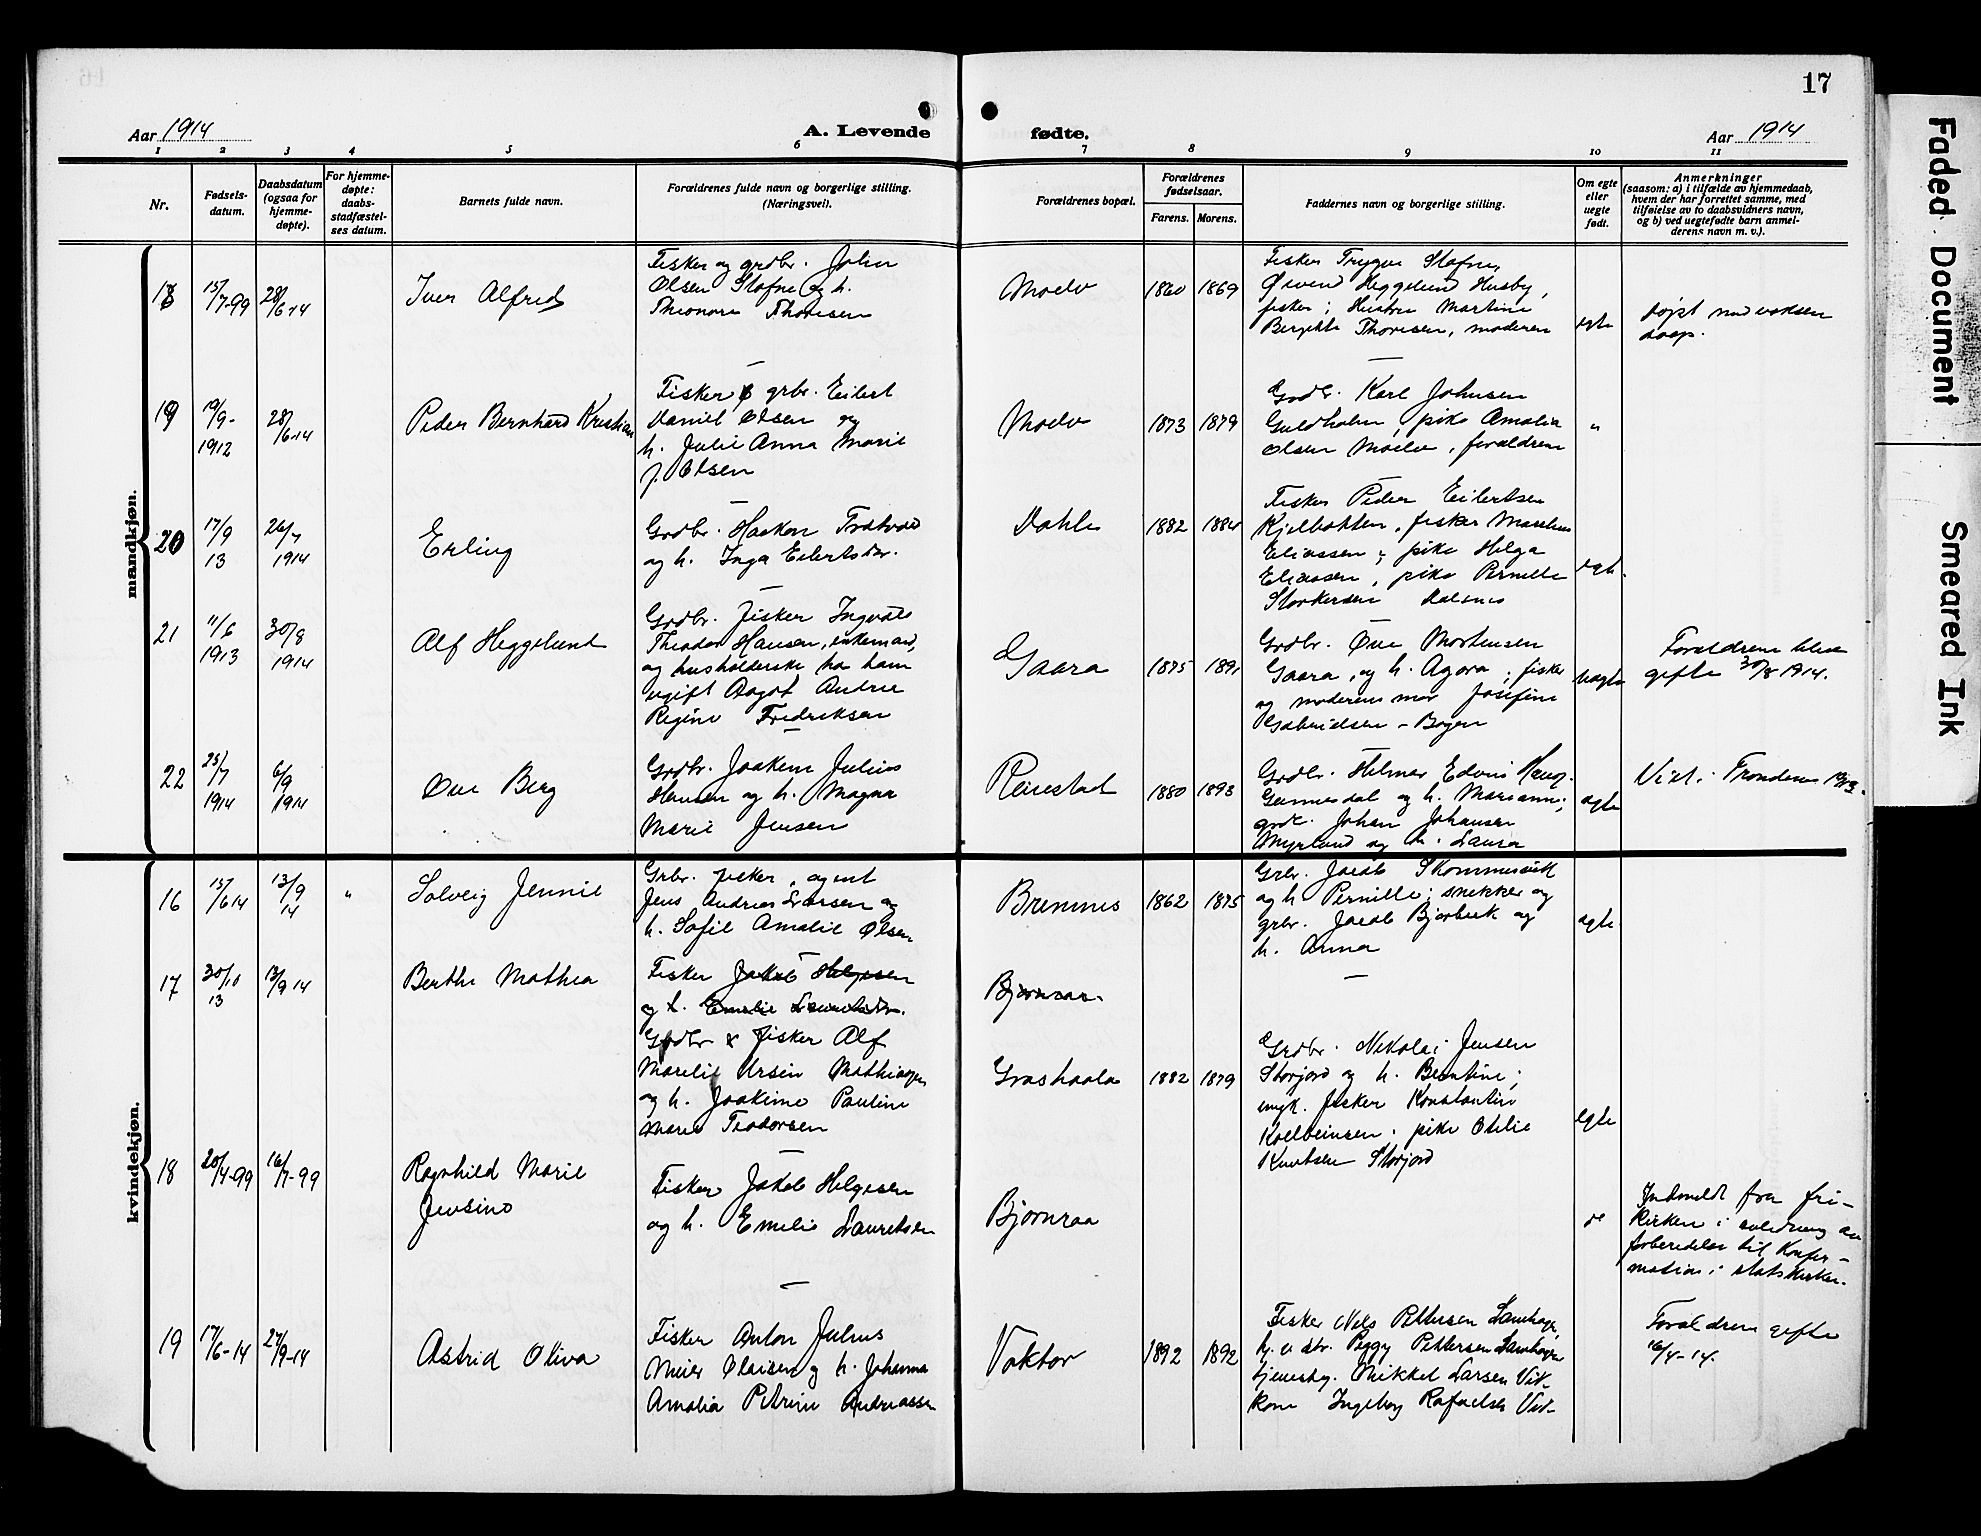 17
Aar 1914
A. Levende fødte.
Aar 1914
1 2 3 4 5 6 7 8 9 10 11
Nr.
Fødsels-
datum.
Daabsdatum
(ogsaa for
hjemme-
døpte).
For hjemme-
døpte:
daabs-
stadfæstel-
ses datum.
Barnets fulde navn.
Forældrenes fulde navn og borgerlige stilling.
(Næringsvei).
Forældrenes bopæl.
Forældrenes
fødselsaar.
Farens. Morens.
Faddernes navn og borgerlige stilling.
Om egte
eller
uegte
født.
Anmerkninger
(saasom: a) i tilfælde av hjemmedaab,
hvem der har forrettet samme, med
tilføielse av to daabsvidners navn,
og b) ved uegtefødte barn anmel-
derens navn m. v.).
mandkjøn.
18
15/7-99
28/6-14
Iver Alfred
Fisker og grdbr. John
Olsen Stofne og h.
Theonora Thoresen
Moelv
1860 1869
Fisker Trygve Stofne,
Øivend Heggelund Husby,
fisker; Hustru Martine
Bergitte Thoresen, moderen
egte
døpt med voksen
daap.
19
19/9-
1912
28/6-14
Peder Bernhard Kristian
Fisker & grbr. Eilert
Daniel Olsen og
h. Julie Anna Marie
f. Olsen
Moelv
1873 1879
Grdb. Karl Johnsen
Guldholm, pike Amalia
Olsen Moelv, forældrene
"
20
17/9
13
26/7
1914
Erling
Grdbr. Haakon
og h. Inga Eilertsdtr.
Dahle
1882 1884
Fisker Peder Eilertsen
Kjelbotten, fisker
Eliassen; pike Helga
Eliassen, pike Pernille
Storkersen Dalsnes
egte.
21
11/6
1913
30/8
1914
Alf Heggelund
Grdbr. fisker Ingvald
Theodor Hansen, enkemand,
og husholderske hos ham
ugift Aagot Andrea
Regine Fredriksen
Gaara
1875 1891
Grdbr. Ove Mortensen
Gaara, og h. Agora; fisker
og moderens mor Josefine
Gabrielsen - Bogen
uegte
Forældrene blev
gifte 30/8 1914.
22
25/7
1914
6/9
1914
Ove Berg
Grdbr. Joakim Julius
Hansen og h. Magna
Marie Jensen
Reinestad
1880 1893
Grdbr. Helmer Edvin Haug.
Gunnesdal og h. Mariann;
grdb. Johan Johansen
Myrlund og h. Laura
egte
Viet i Trondenes
kvindekjøn.
16
15/6 14
13/9
14
"
Solveig Jennie
Grbr. fisker, agent
Jens Andreas Larsen og
h. Sofie Amalie Olsen
Bremnes
1862 1875
Grbr. Jacob Skommesvik
og h Pernille; snekker og
grbr. Jacob Bjørbæk og
h. Anna
egte
17
30/10
13
13/9 14
Berthe Mathea
Fisker Jakob Helgesen
og h. Emelie Lauritsdtr.
Grdbr & fisker Alf
Marelie Ursin Mathiasen
og h. Joakime Pauline
Marie Teodorsen
Bjørnraa.
Grashaala
1882 1879
Grdbr. Nikolai Jensen
Storjord og h. Berntine;
ungk. fisker Konstantin
Kolbeinsen; pike Otelie
Knutsen Storjord
egte
18
20/4-99
16/7-99
Ragnhild Marie
Jensine
Fisker Jakob Helgesen
og h. Emelie Lauritsdtr
Bjørnraa
Indmeldt fra fri-
kirken i anledning av
forberedelse til Konfir-
mation i statskirken.
19
17/6-14
27/9-14
Astrid Oliva
Fisker Anton Julius
Meier Olaisen og h. Johanna
Amalia Petrine Andreassen
Vaktor
1892 1892
Fisker Nels Pettersen Lamhagen,
Peggy Pettersen Lamhagen
Mikkel Larsen Vik-
Ingeborg Rafaelsen Vik-
Forældrene gifte
16/4-14.
Faded Document
Smeared Ink